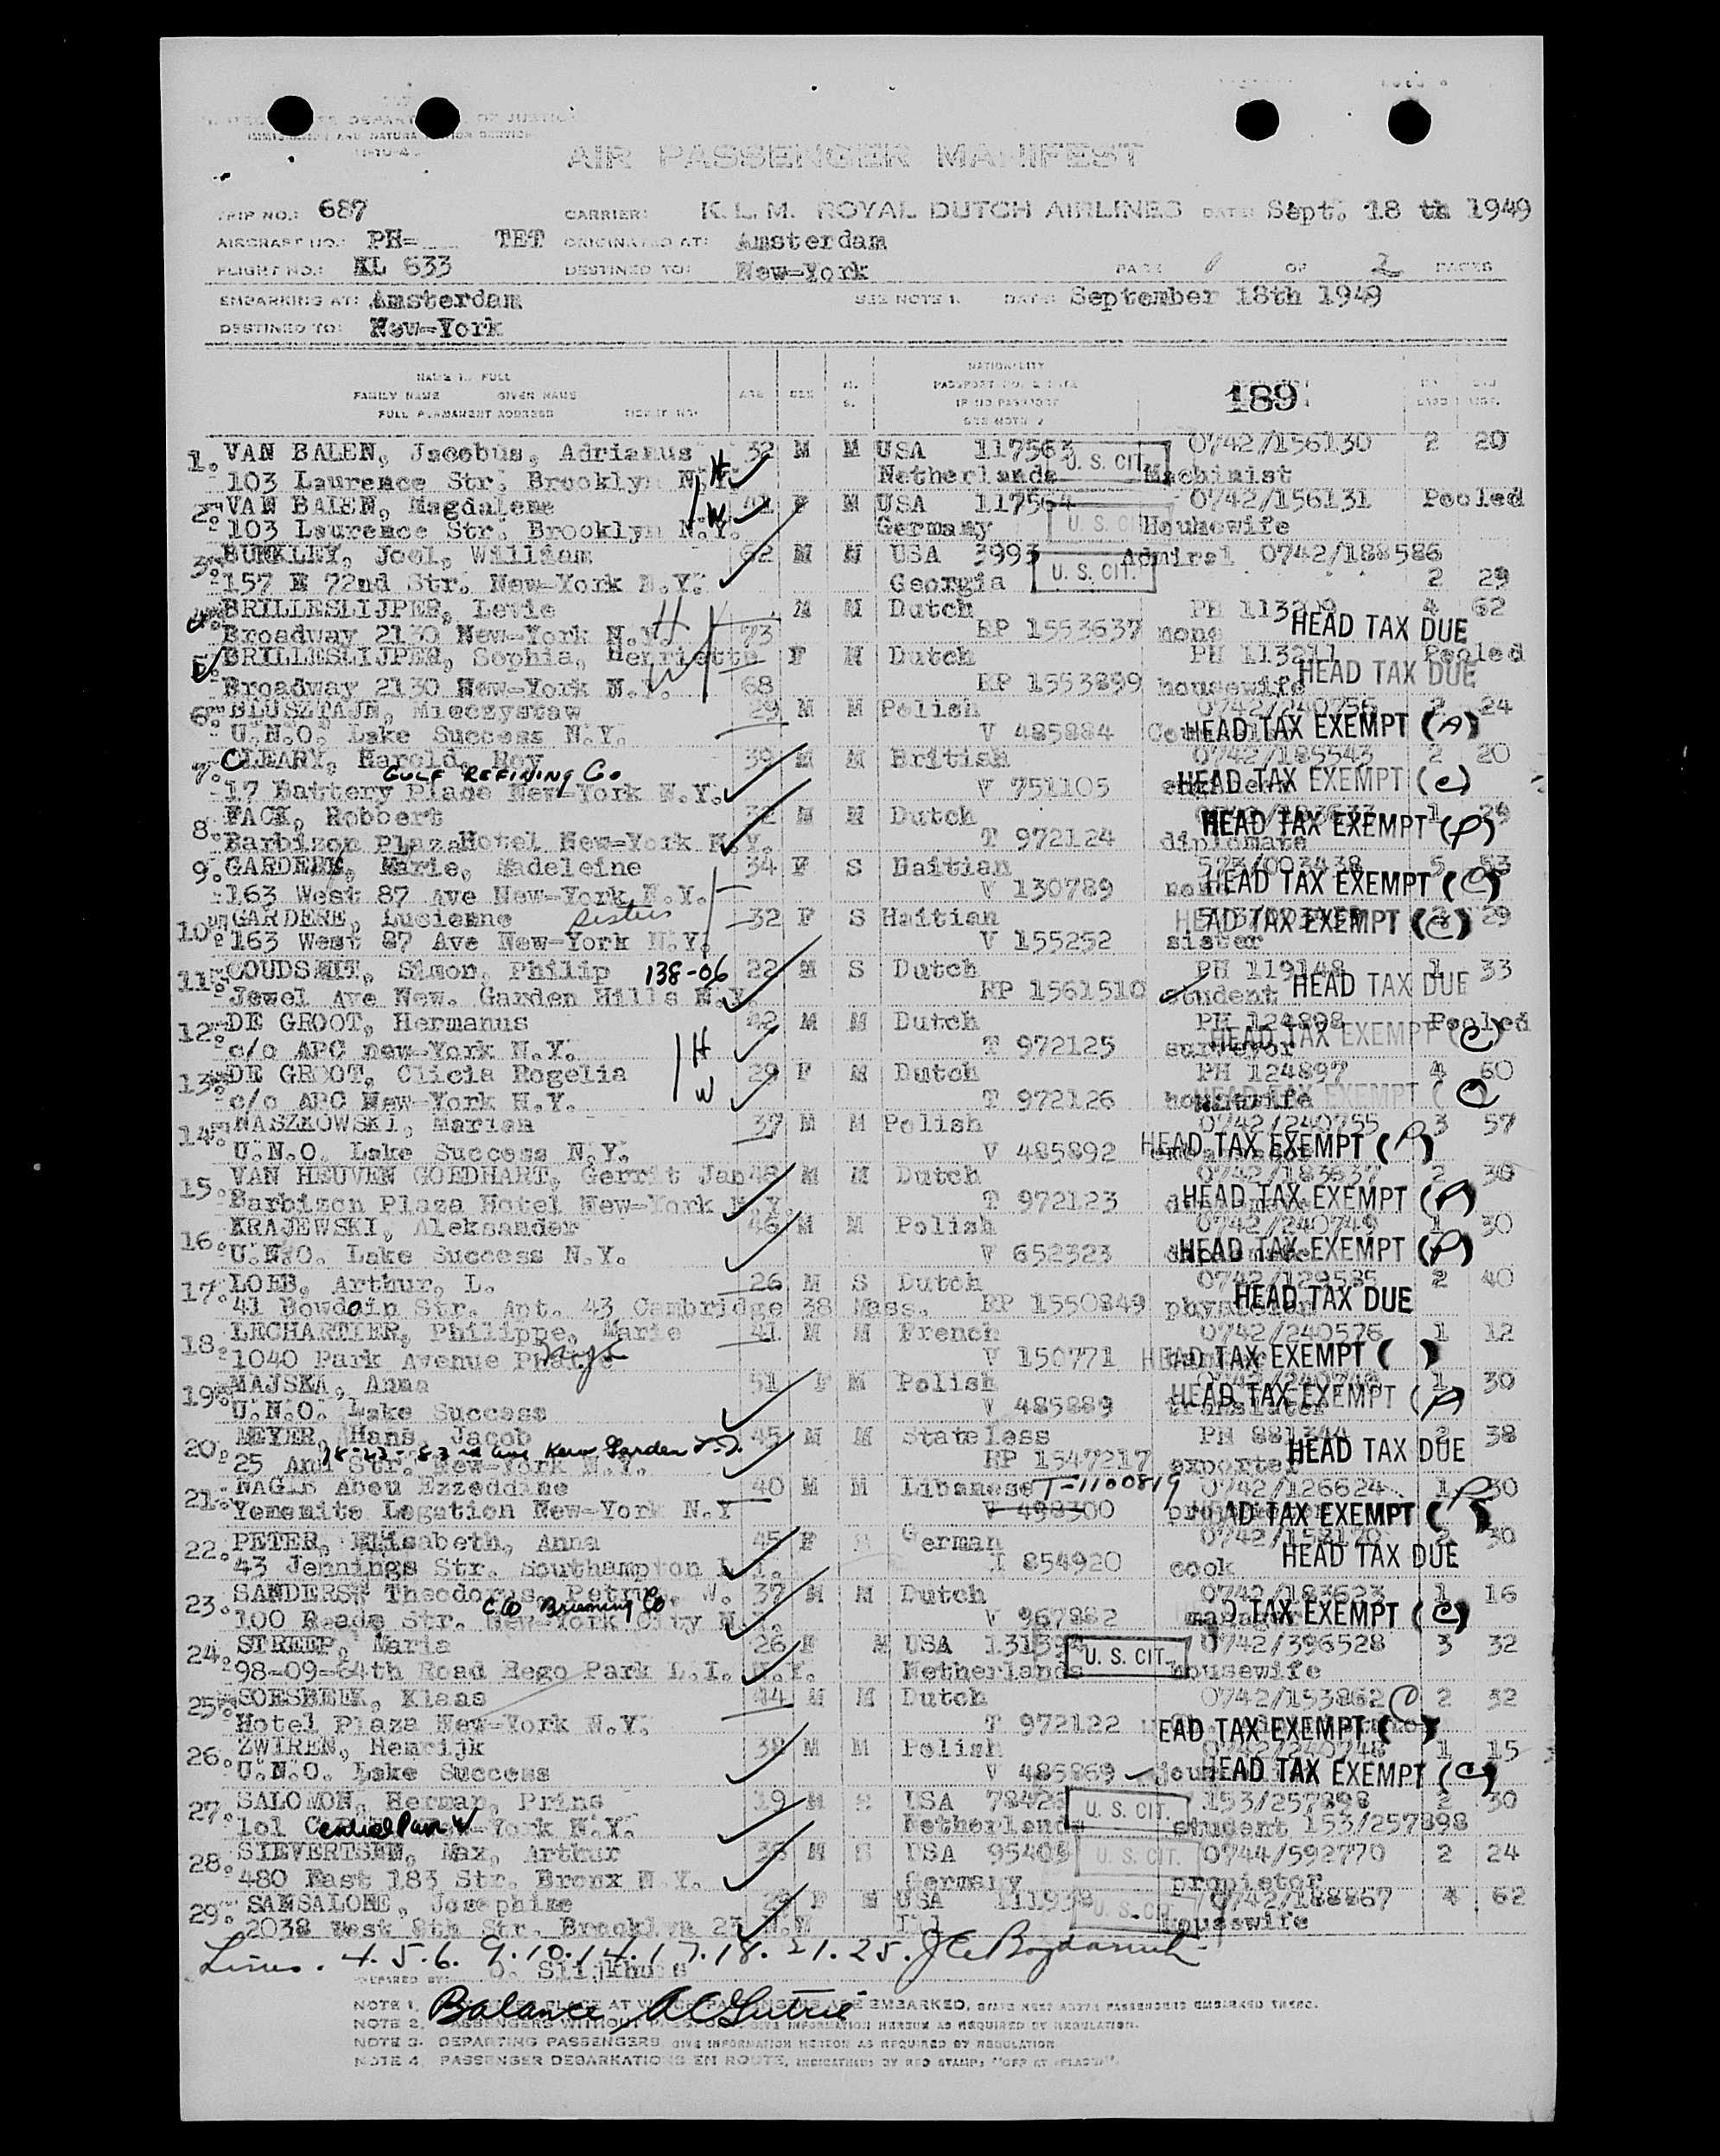 AIR PASSENGER MANIFEST
TRIP NO.: 687 CARRIER: K.L.M. ROYAL DUTCH AIRLINES DATE: Sept. 18 th 1949
AIRCRAFT NO.: PH= TET ORIGINATED AT: Amsterdam
FLIGHT NO.: KL 633 DESTINED TO: New=York PAGE 1 OF 2 PAGES
EMBARKING AT: Amsterdam SEE NOTE 1. DATE: September 18th 1949
DESTINED TO: New=York
NAME IN FULL NATIONALITY
FAMILY NAME GIVEN NAME AGE SEX PASSPORT NO. 189
FULL PERMANENT ADDRESS TICKET NO. IF NO PASSPORT
1. VAN BALEN, Jacobus, Adrianus 32 M M USA 117563 0742/156130 2 20
103 Laurence Str. Brooklyn N.Y. H Netherlands U. S. CIT. Machinist
2. VAN BALEN, Magdalene 41 F M USA 117564 0742/156131 Pooled
103 Laurence Str. Brooklyn N.Y. W Germany U. S. CIT. Houhewife
3. BUNKLEY, Joel, William 62 M M USA 3993 Admiral 0742/188586
157 E 72nd Str. New=York N.Y. Georgia U. S. CIT. 2 29
4. BRILLESLIJPER, Levie M M Dutch PH 113209 4 62
Broadway 2130 New=York N.Y. H 73 RP 1553637 none HEAD TAX DUE
5. BRILLESLIJPER, Sophia, Henriette F M Dutch PH 113211 Pooled
Broadway 2130 New=York N.Y. W 68 RP 1553899 housewife HEAD TAX DUE
6. BLUSZTAJN, Mieczystaw 29 M M Polish 0742/240756 2 24
U.N.O. Lake Success N.Y. V 485884 HEAD TAX EXEMPT (A)
7. CLEARY, Harold, Roy 39 M M British 0742/185543 2 20
GULF REFINING Co
17 Battery Place New=York N.Y. V 751105 HEAD TAX EXEMPT (C)
8. FACK, Robbert 32 M M Dutch 1 24
Barbizon Plaza Hotel New=York N.Y. T 972124 diplomate HEAD TAX EXEMPT (A)
9. GARDERE, Marie, Madeleine 34 F S Haitian 573/003438 5 53
163 West 87 Ave New=York N.Y. V 130789 HEAD TAX EXEMPT (C)
10. GARDERE, Lucienne sisters 32 F S Haitian 29
163 West 87 Ave New=York N.Y. V 155252 sister HEAD TAX EXEMPT (C)
11. GOUDSMIT, Simon, Philip 138-06 22 M S Dutch PH 119148 1 33
Jewel Ave New. Garden Hills N.Y. RP 1561510 student HEAD TAX DUE
12. DE GROOT, Hermanus 42 M M Dutch PH 124898 Pooled
c/o APC new=York N.Y. H T 972125 surveyor HEAD TAX EXEMPT (C)
13. DE GROOT, Clicia Rogelia 29 F M Dutch PH 124897 4 60
c/o APC New=York N.Y. W T 972126 housewife HEAD TAX EXEMPT (C)
14. NASZKOWSKI, Marian 37 M M Polish 0742/240755 3 57
U.N.O. Lake Success N.Y. V 485892 HEAD TAX EXEMPT (A)
15. VAN HEUVEN GOEDHART, Gerrit Jan 48 M M Dutch 0742/183637 2 30
Barbizon Plaza Hotel New=York N.Y. T 972123 HEAD TAX EXEMPT (A)
16. KRAJEWSKI, Aleksander 46 M M Polish 0742/240749 1 30
U.N.O. Lake Success N.Y. V 652323 HEAD TAX EXEMPT (A)
17. LOEB, Arthur, L. 26 M S Dutch 0742/129585 2 40
41 Bowdoin Str. Apt. 43 Cambridge 38 Mass. RP 1550849 HEAD TAX DUE
18. LECHARTIER, Philippe, Marie 41 M M French 0742/240576 1 12
1040 Park Avenue V 150771 HEAD TAX EXEMPT ( )
19. MAJSKA, Anna 51 F M Polish 1 30
U.N.O. Lake Success V 485889 translater HEAD TAX EXEMPT (A)
20. MEYER, Hans, Jacob 45 M M Stateless PH 881344 2 38
78-23 - 83rd ave Kew Garden L.I.
25 Ann Str. New=York N.Y. RP 1547217 exporter HEAD TAX DUE
21. NAGIB Abou Ezzeddine 40 M M Libanese T-1100819 0742/126624 1 30
Yemenite Legation New=York N.Y V 498300 HEAD TAX EXEMPT
22. PETER, Elisabeth, Anna 45 F S German 0742/153170 2 30
43 Jennings Str. Southampton L.I. I 854920 cook HEAD TAX DUE
23. SANDERS, Theodorus, Petrus, W. 37 M M Dutch 0742/183623 1 16
c/o Briening Co
100 Reade Str. New=York City N.Y. V 967882 manager HEAD TAX EXEMPT (C)
24. STREEP, Maria 26 F M USA 131394 0742/396528 3 32
98=09=64th Road Rego Park L.I. N.Y. Netherlands U. S. CIT. housewife
25. SOESBEEK, Klaas 44 M M Dutch 0742/153862 C 2 32
Hotel Plaza New=York N.Y. T 972122 HEAD TAX EXEMPT
26. ZWIREN, Henrijk 38 M M Polish 0742/240748 1 15
U.N.O. Lake Success V 485869 HEAD TAX EXEMPT (C)
27. SALOMON, Herman, Prins 19 M S USA 153/257898 2 30
101 Central Park W New=York N.Y. Netherlands U. S. CIT. student 153/257898
28. SIEVERTSEN, Max, Arthur 38 M S USA 95405 0744/592770 2 24
480 East 183 Str. Bronx N.Y. Germany U. S. CIT. propietor
29. SANSALONE, Josephine F M USA 111938 0742/188867 4 62
2038 West 8th Str. Brooklyn 23 N.Y Ill U. S. CIT. housewife
Lines. 4. 5. 6. 9. 10. 14. 17. 18. 21. 25.
PREPARED BY:
Balance
NOTE 1. PLACE AT WHICH PASSENGERS ARE EMBARKED,
NOTE 2. PASSENGERS WITHOUT GIVE INFORMATION HEREON AS REQUIRED BY REGULATION.
NOTE 3. DEPARTING PASSENGERS GIVE INFORMATION HEREON AS REQUIRED BY REGULATION
NOTE 4. PASSENGER DEBARKATIONS EN ROUTE, INDICATED BY RED STAMP: "OFF AT (PLACE)".